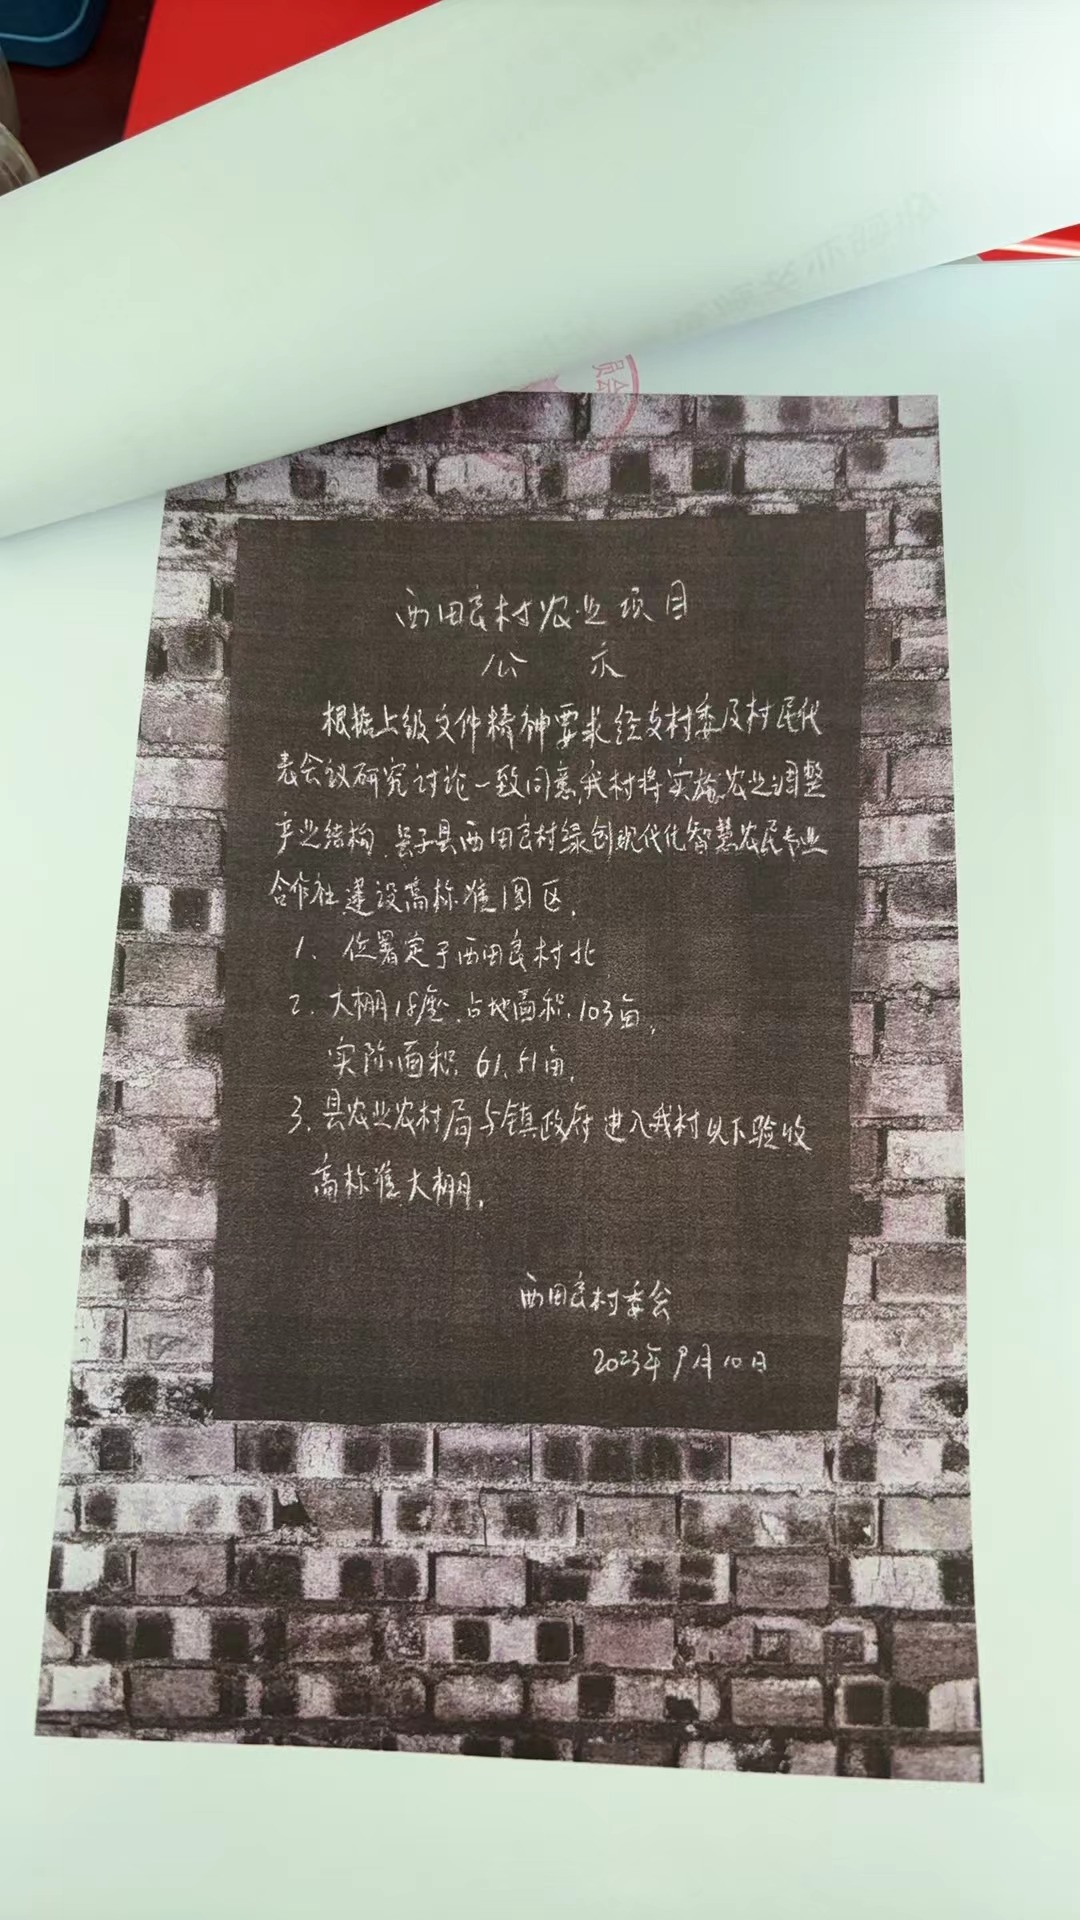 员会
西田良村农业项目
公 示
根据上级文件精神要求经支村委及村民代
表会议研究讨论一致同意,我村将实施农业调整
产业结构.长子县西田良村绿创现代化智慧农民专业
合作社建设高标准园区.
1、位置定于西田良村北
2、大棚18座.占地面积.103亩,
实际面积 61.51亩,
3.县农业农村局与镇政府进入我村以下验收
高标准大棚,
西田良村委会
2023年9月10日